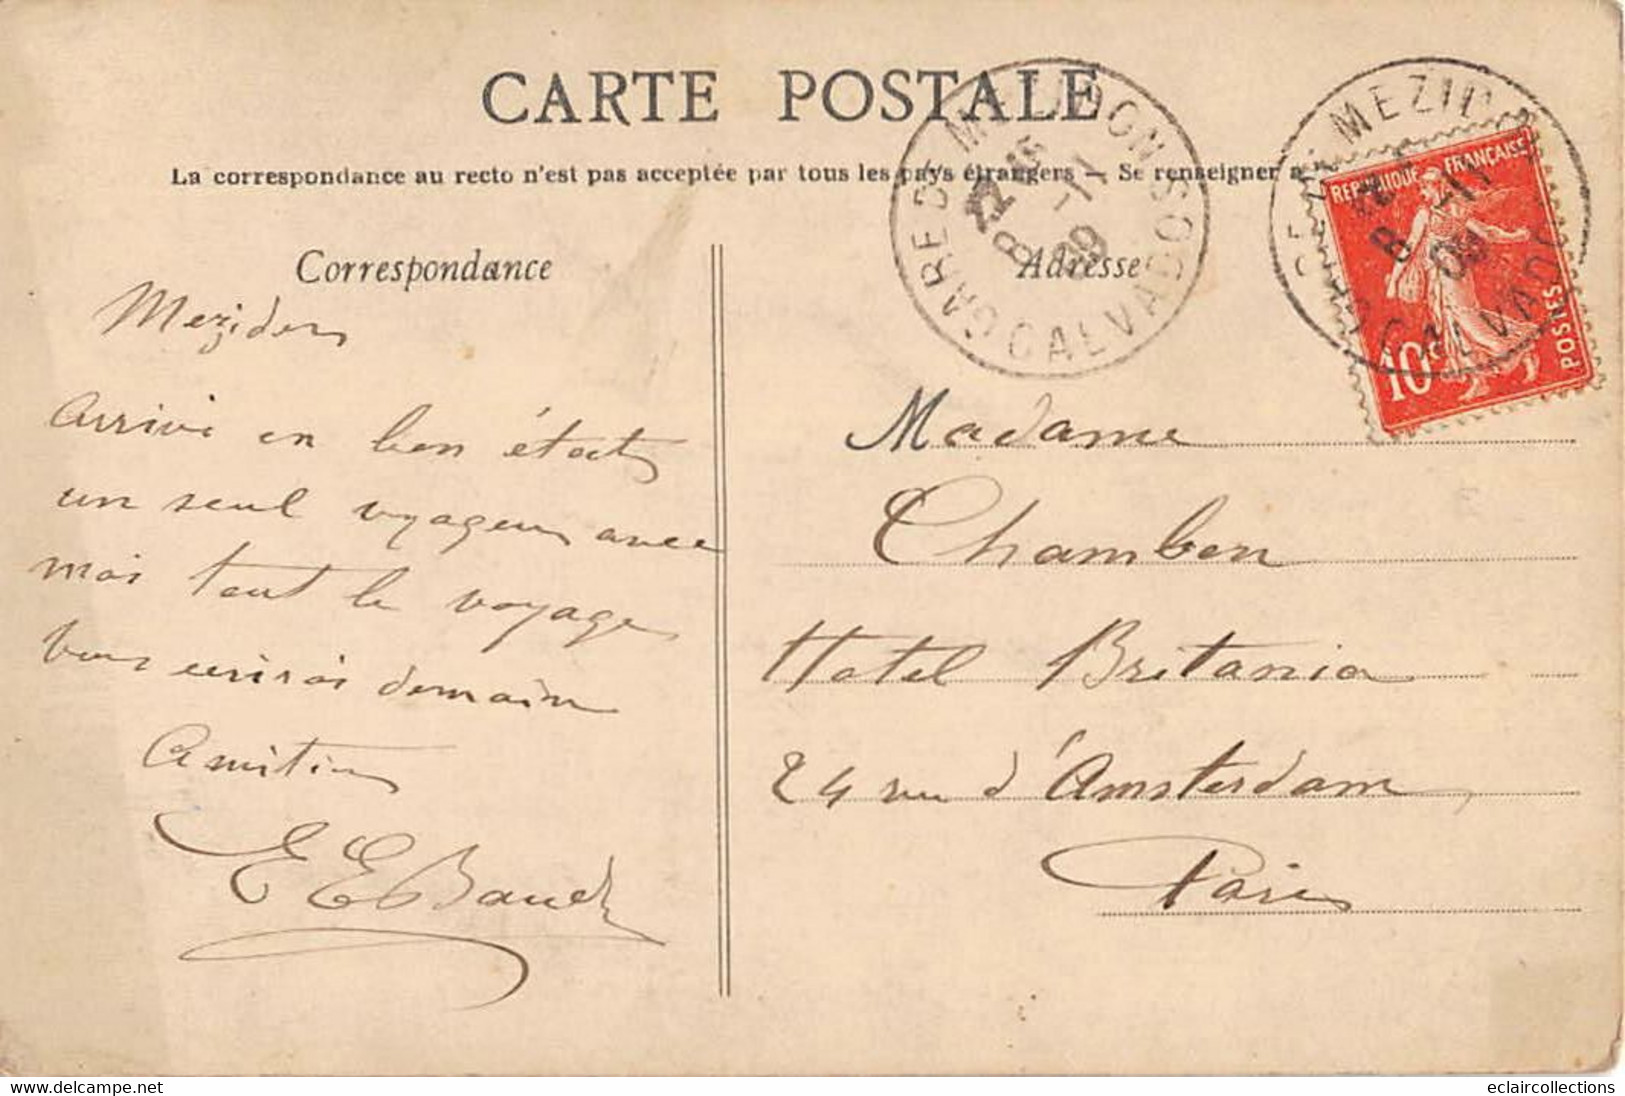 CARTE POSTALE
La correspondance au recto n'est pas acceptée par tous les pays étrangers — Se renseigner à
Correspondance
Mezidon
Arrivé en bon état
un seul voyageur avec
moi tout le voyage
Vous écrirai demain
Amitiés
E E Baud
Adresse
Madame
Chambon
Hotel Britania
24 rue d'Amsterdam
Paris
GARE DE MEZIDON
CALVADOS
8 -11 09
MEZIDON
8 -11 09
CALVADOS
REPUBLIQUE FRANÇAISE
10c
POSTES
eclaircollections